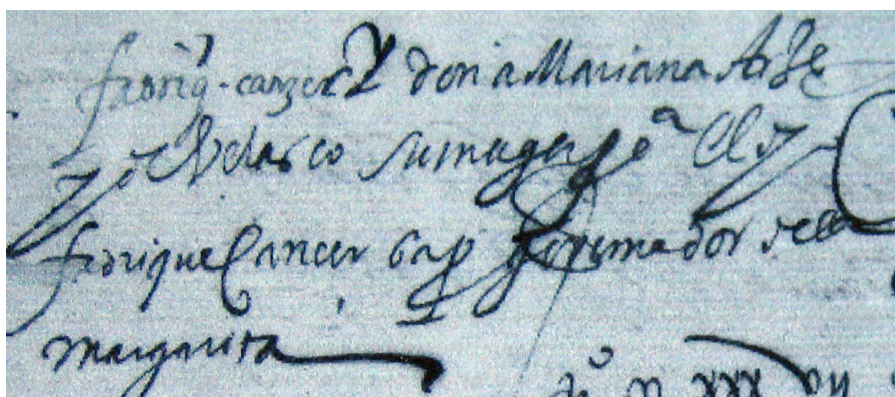 fadriq. canzer y doña Mariana Arze
y de Velasco su muger
fadrique Cancer cap gouernador de la
margarita
xxx vij